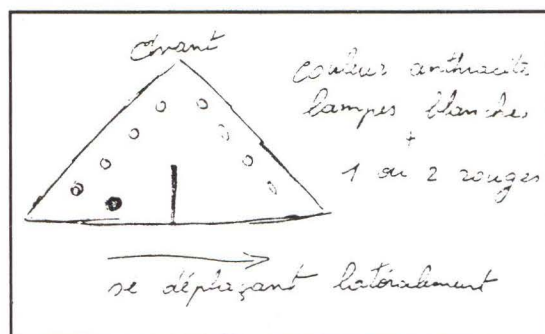 avant
couleur anthracite
lampes blanches
+
1 ou 2 rouges
se déplaçant latéralement